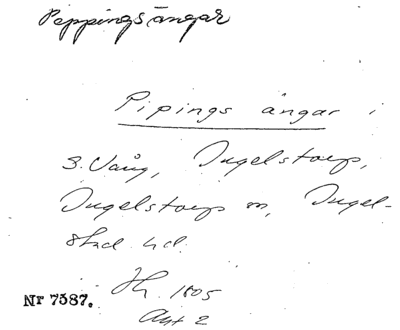 Peppingsängar
Pipings ängar i
3. Vång, Ingelstorp,
Ingelstorp sn, Ingel-
stad hd.
Sk. 1805
Akt 2
Nr 7587.